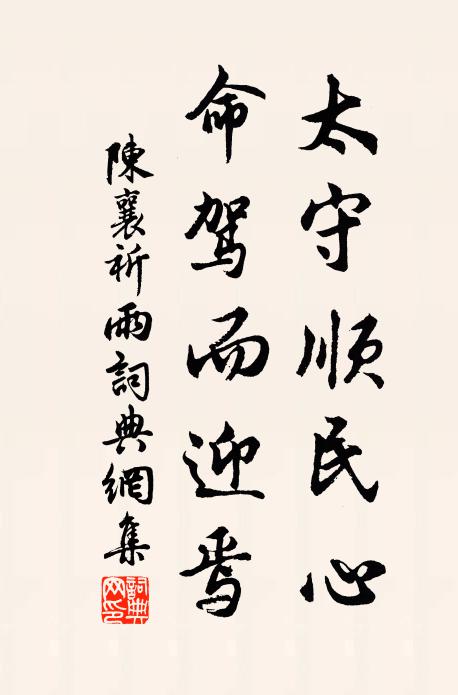 太守順民心
命駕而迎焉
陳襄祈雨詞典網集
詞典网印